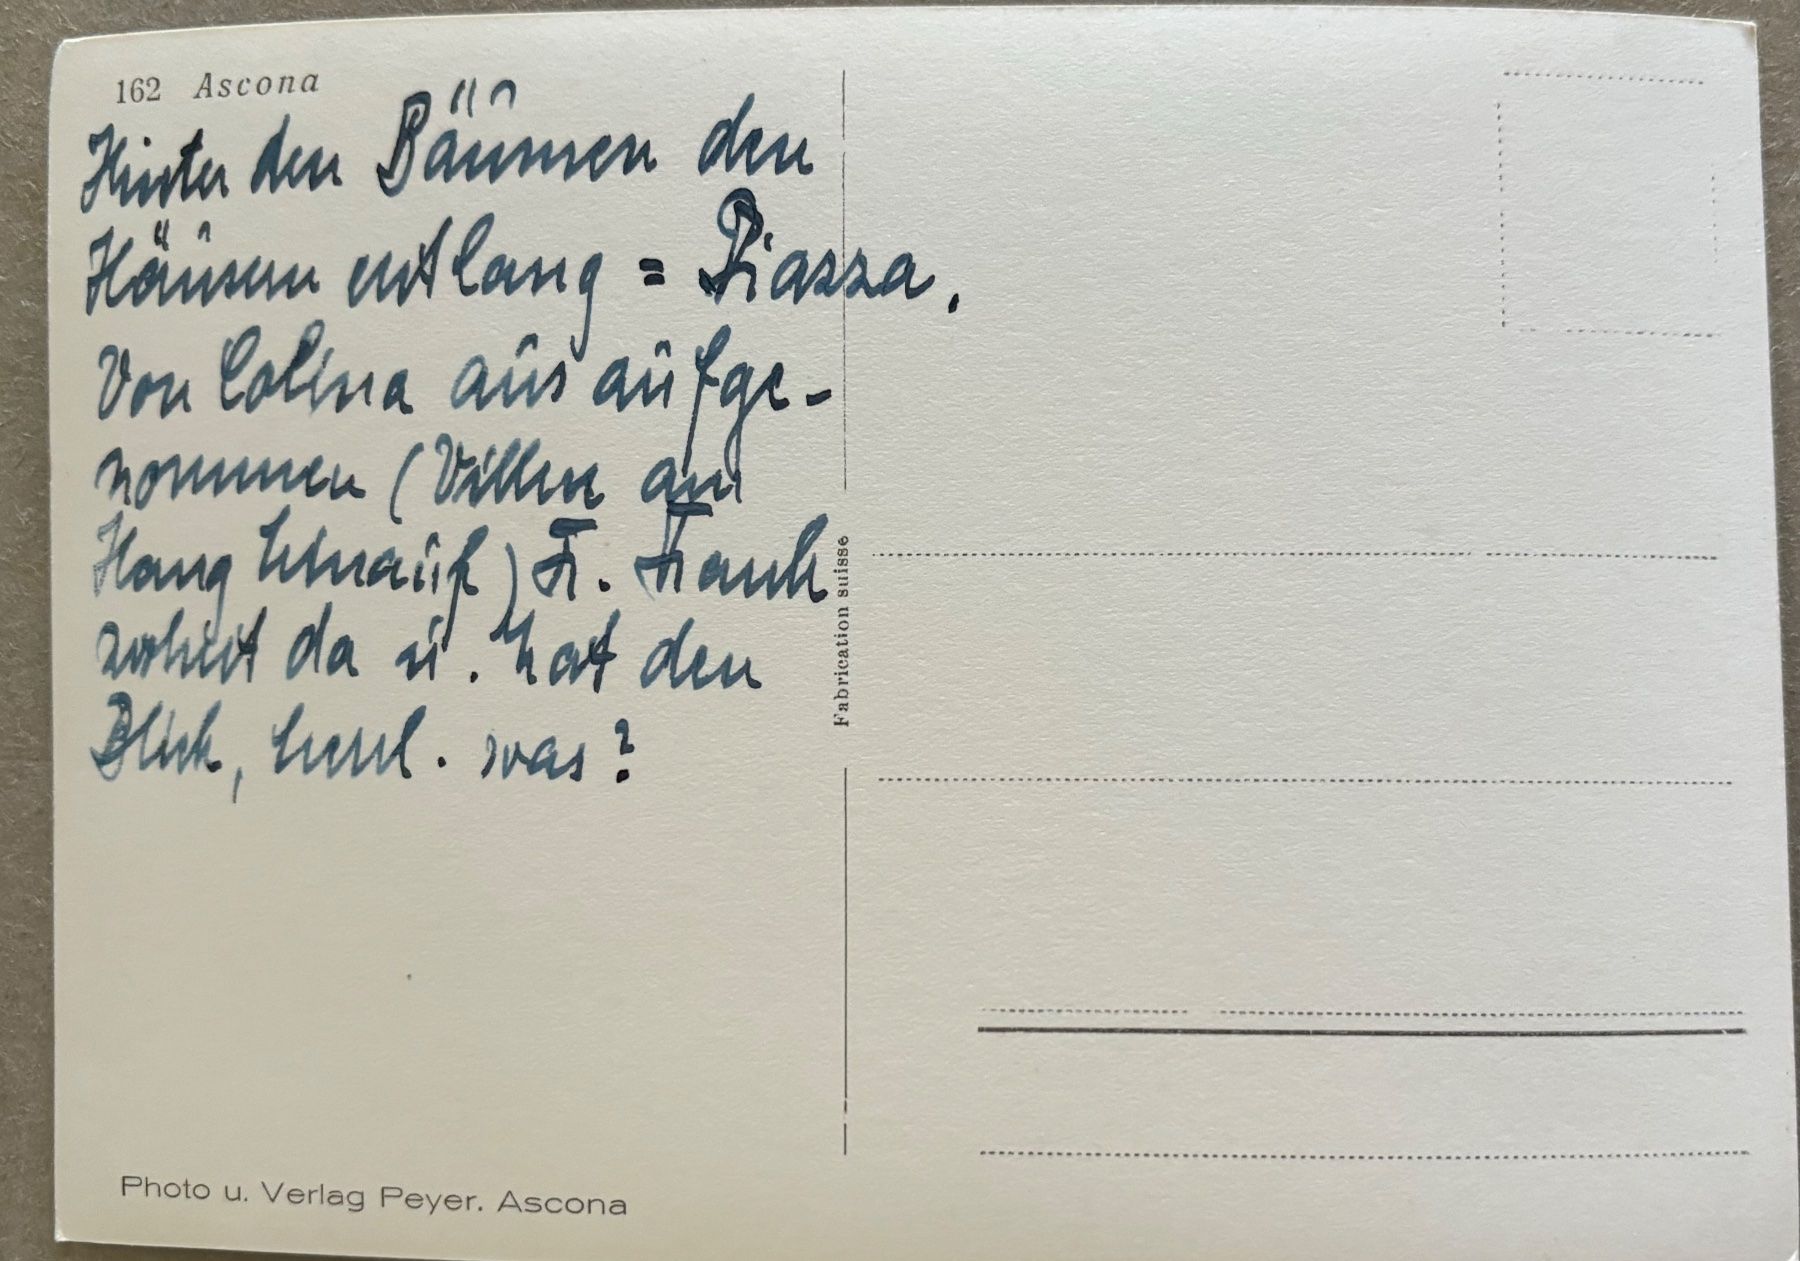 162 Ascona
Hinter den Bäumen den
Häusern entlang = Piazza.
Von Colina aus aufge-
nommen (Villen am
Hang hinauf) Fr. Frank
wohnt da u. hat den
Blick, herrl. was?
Fabrication suisse
Photo u. Verlag Peyer. Ascona